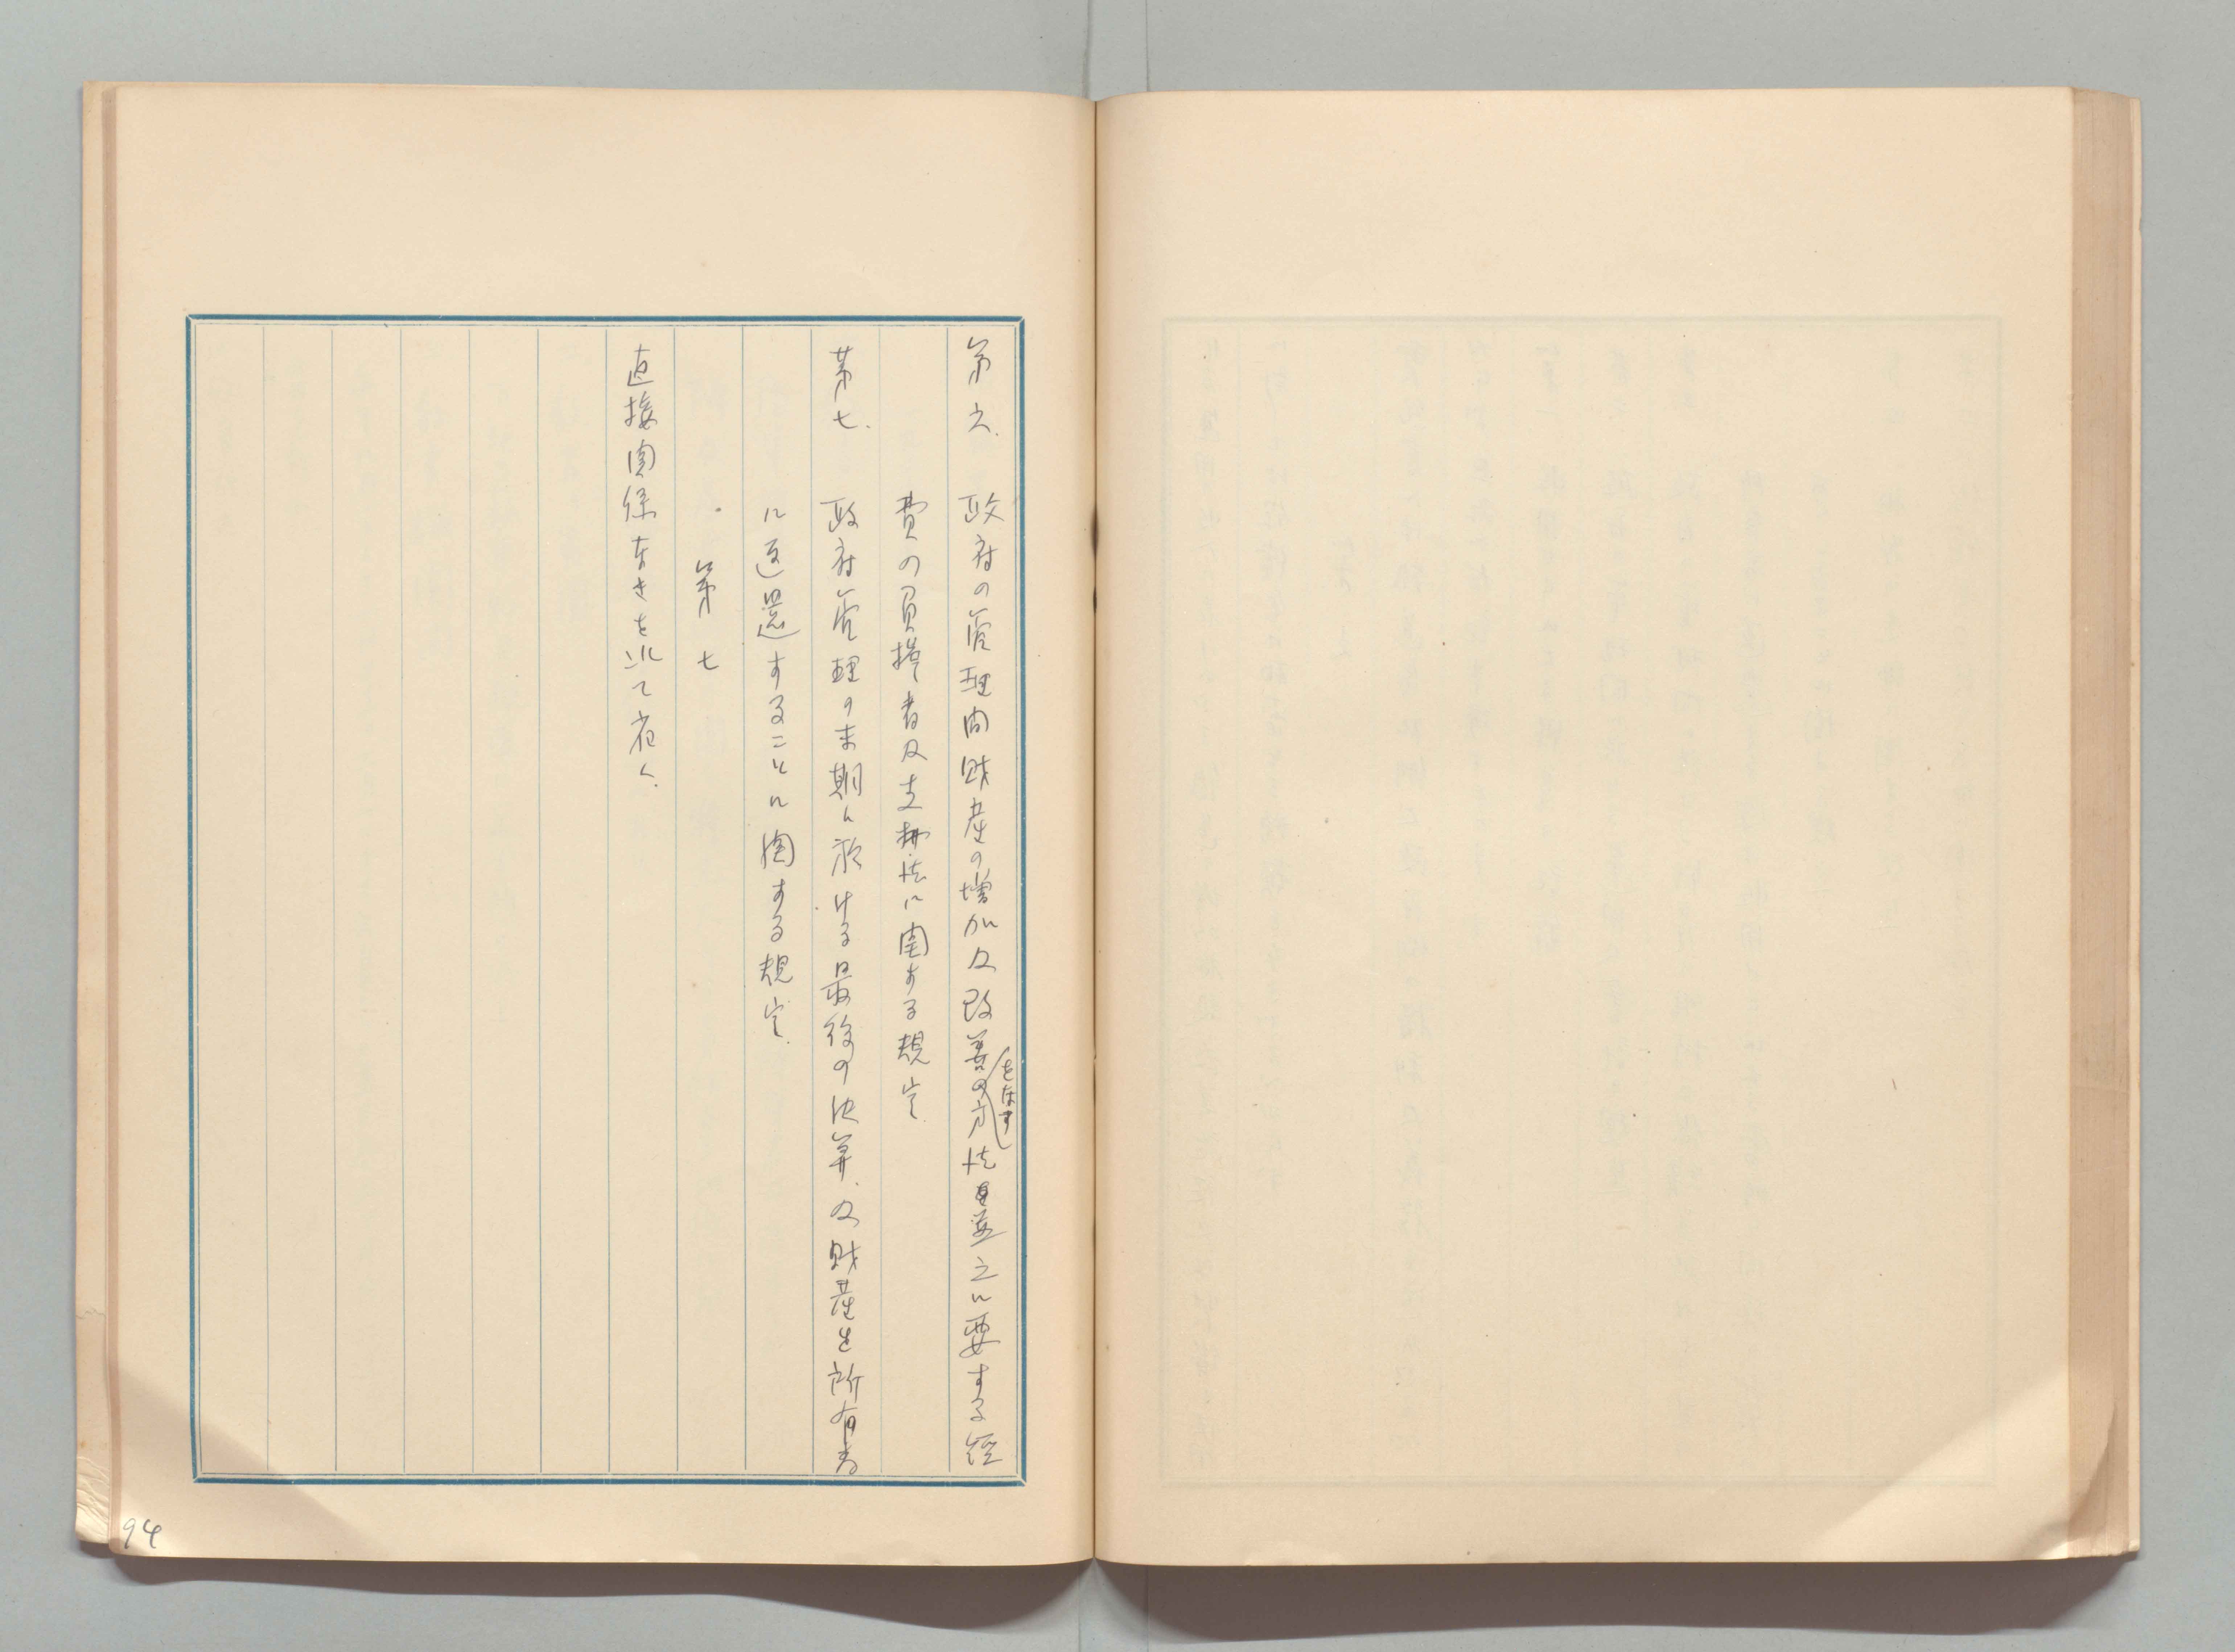 第六. 政府の管理間財産の増加及改善の方法並之に要する経
をなす
費の負擔者及支拂方法に関する規定.
第七. 政府管理の末期に於ける最後の決算、及財産を所有者
に返還することに関する規定.
第七
直接関係なきを以て省く.
94